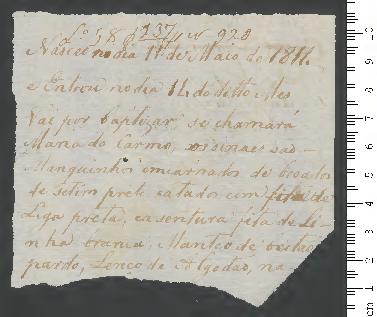 Lº 58 f 237 Nº 920
Nasceo no dia 11 de Maio de 1811
e Entrou no dia 12 do ditto mes
Vai por baptizar, se chamará
Maria do Carmo, os sinaes são –
Manguinhos encarnados de
de Setim preto catados com fita de
Liga preta, ea sentura fita de Li-
nha branca, Manteo de
pardo, Lenço de Algodão, na